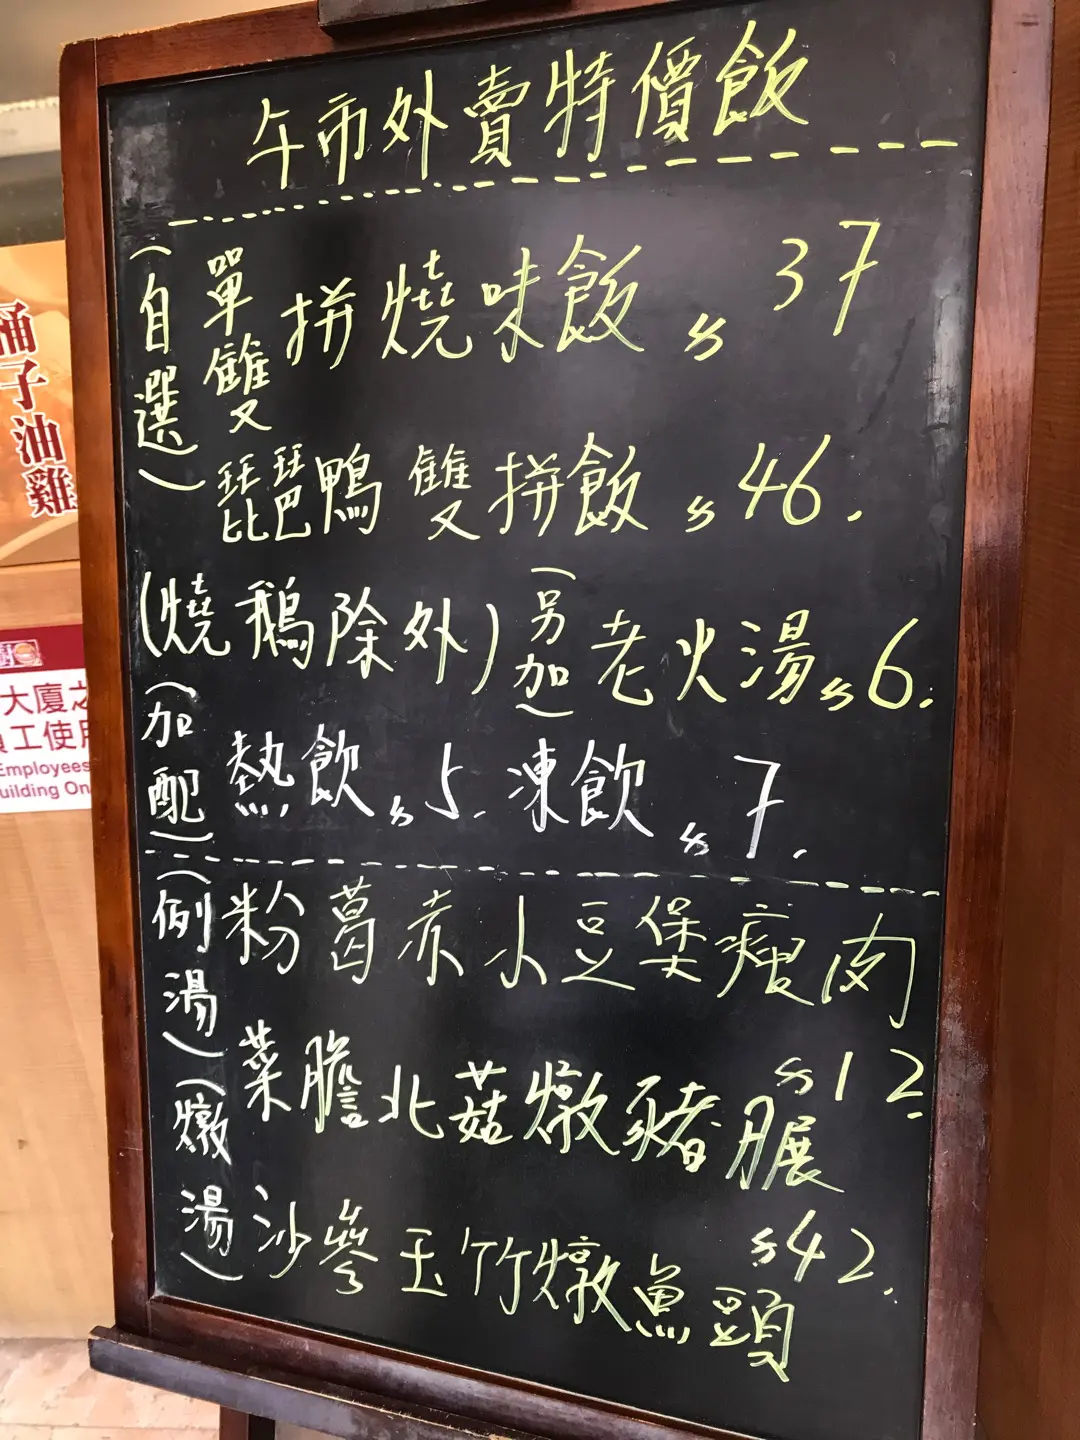 午市外賣特價飯
(自選) 單雙拼燒味飯 $37
琵琶鴨雙拼飯 $46.
(燒鵝除外) (另加) 老火湯 $6.
(加配) 熱飲 $5. 凍飲 $7.
(例湯) 粉葛赤小豆煲瘦肉
$12
(燉湯) 菜膽北菇燉豬𦟌
沙參玉竹燉魚頭
$42.
桶子油雞
廚
大廈之
員工使用
Employees
uilding On